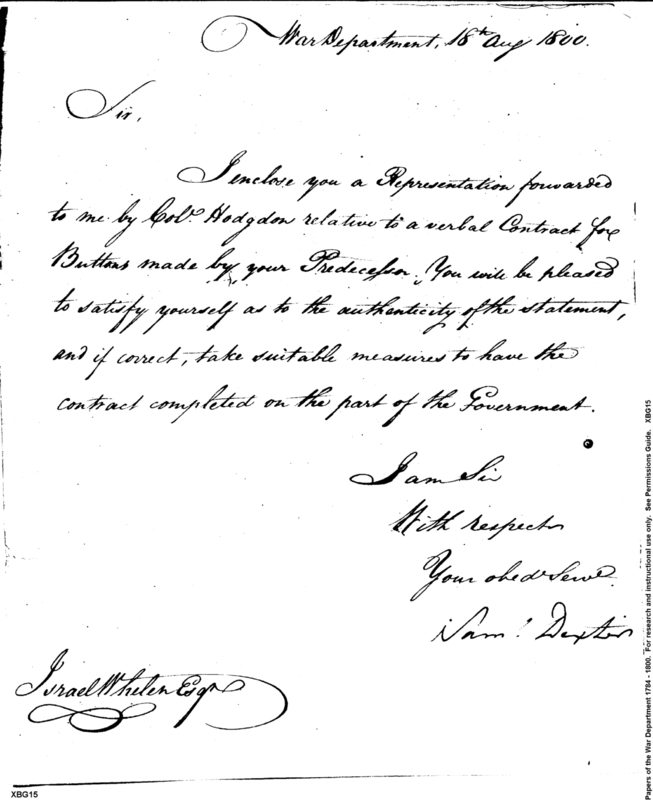 War Department, 18th Aug 1800.
Sir,
I enclose you a Representation forwarded
to me by Colo. Hodgdon relative to a verbal Contract for
Buttons made by your Predecessor. You will be pleased
to satisfy yourself as to the authenticity of the statement,
and if correct, take suitable measures to have the
contract completed on the part of the Government.
I am Sir
With respect
Your obedt Servt
Saml. Dexter
Israel Whelen Esqr
XBG15
Papers of the War Department 1784 - 1800. For research and instructional use only. See Permissions Guide. XBG15